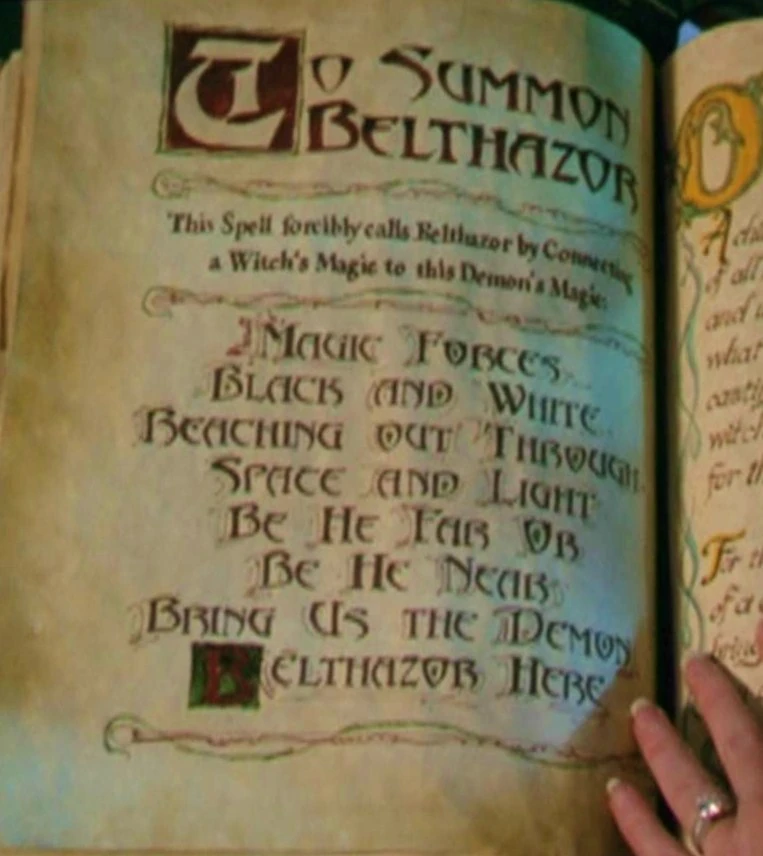 To Summon
Belthazor
This Spell forcibly calls Belthazor by Connecting
a Witch's Magic to this Demon's Magic:
Magic Forces
Black and White
Reaching out Through
Space and Light
Be He Far Or
Be He Near
Bring Us the Demon
Belthazor Here
of all
and
what
witch
for th
For th
of a